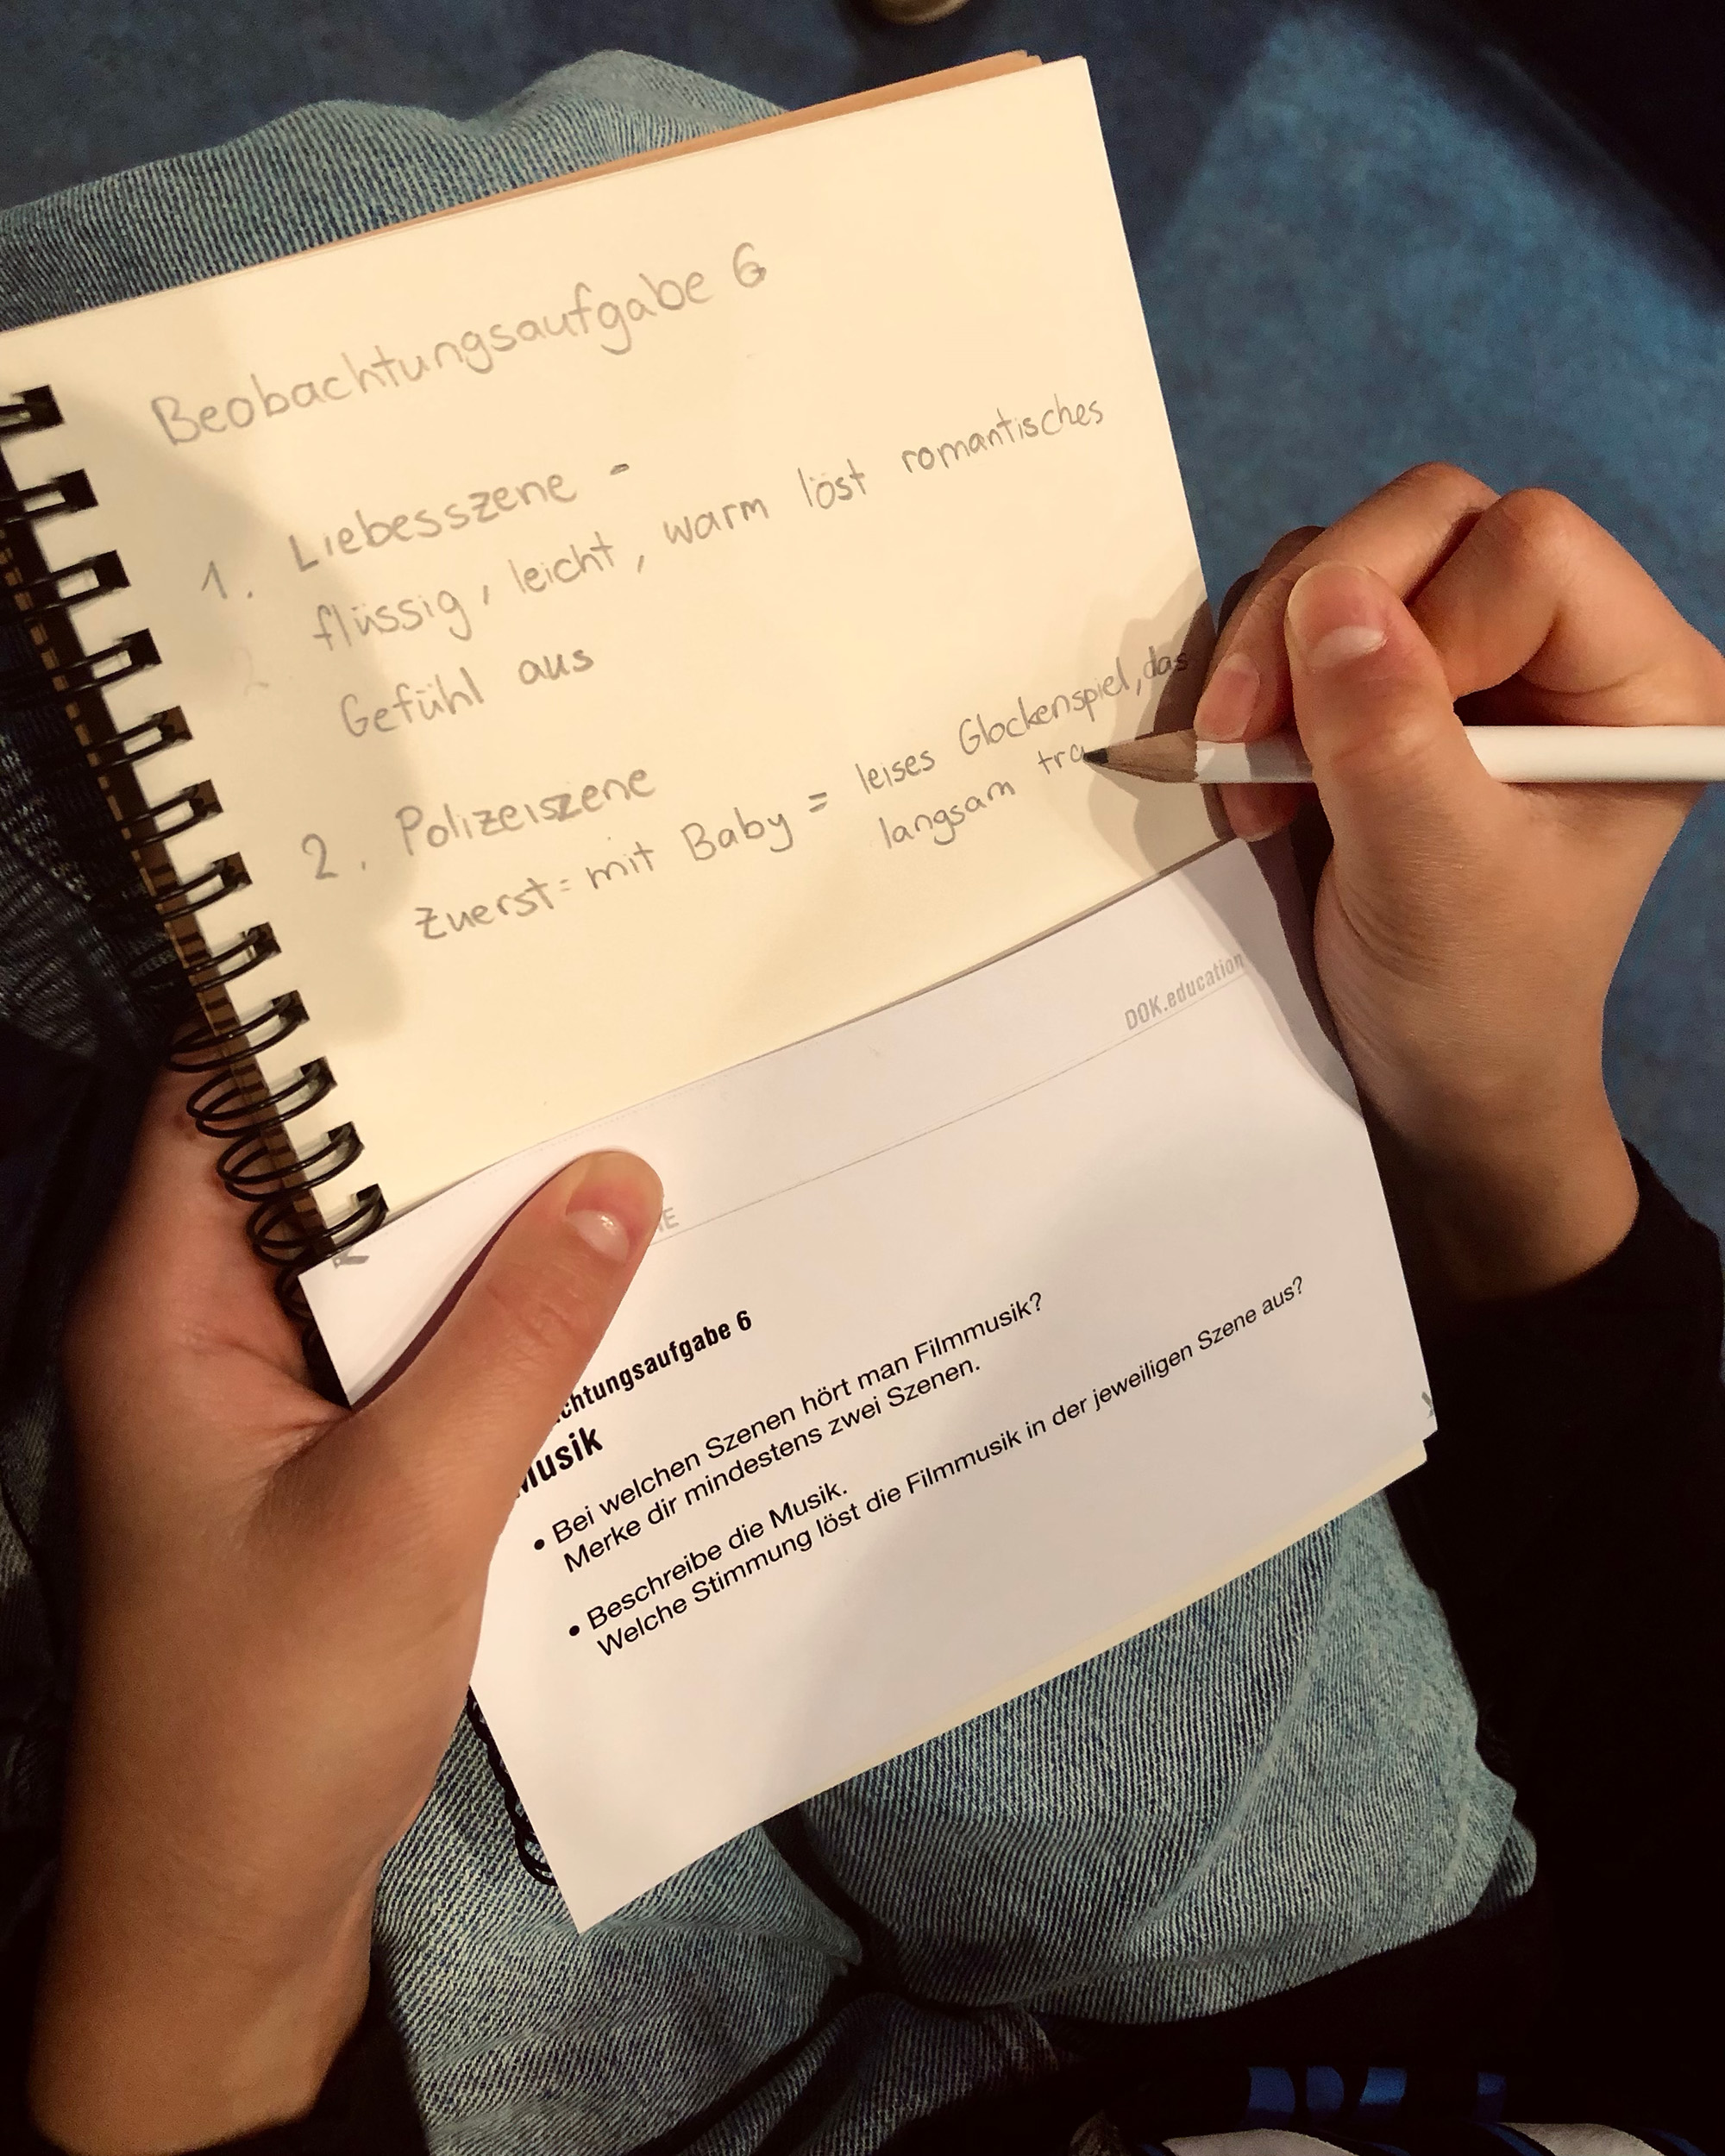 Beobachtungsaufgabe 6
1. Liebesszene -
flüssig, leicht, warm löst romantisches
Gefühl aus
2. Polizeiszene
zuerst = mit Baby = leises Glockenspiel, das
langsam tra
DOK.education
chtungsaufgabe 6
Musik
• Bei welchen Szenen hört man Filmmusik?
Merke dir mindestens zwei Szenen.
• Beschreibe die Musik.
Welche Stimmung löst die Filmmusik in der jeweiligen Szene aus?